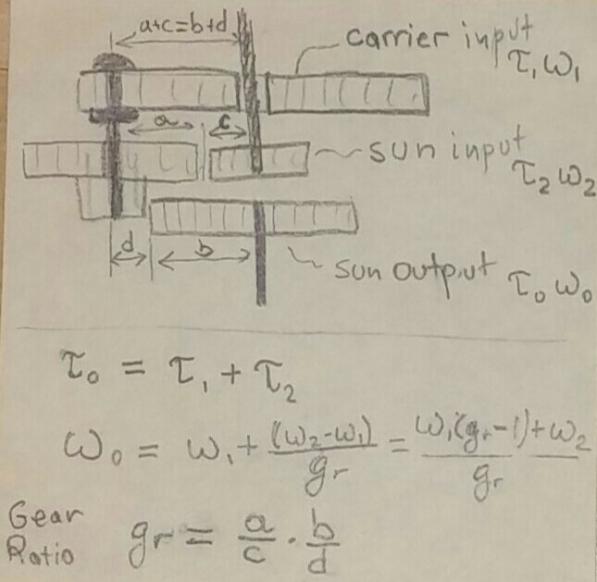 a+c=b+d
carrier input
τ₁ω₁
a c
sun input
τ₂ω₂
d b
sun output τ₀ω₀
τ₀ = τ₁ + τ₂
ω₀ = ω₁ + (ω₂-ω₁)/gr = ω₁(gr-1)+ω₂/gr
Gear
Ratio gr = a/c · b/d